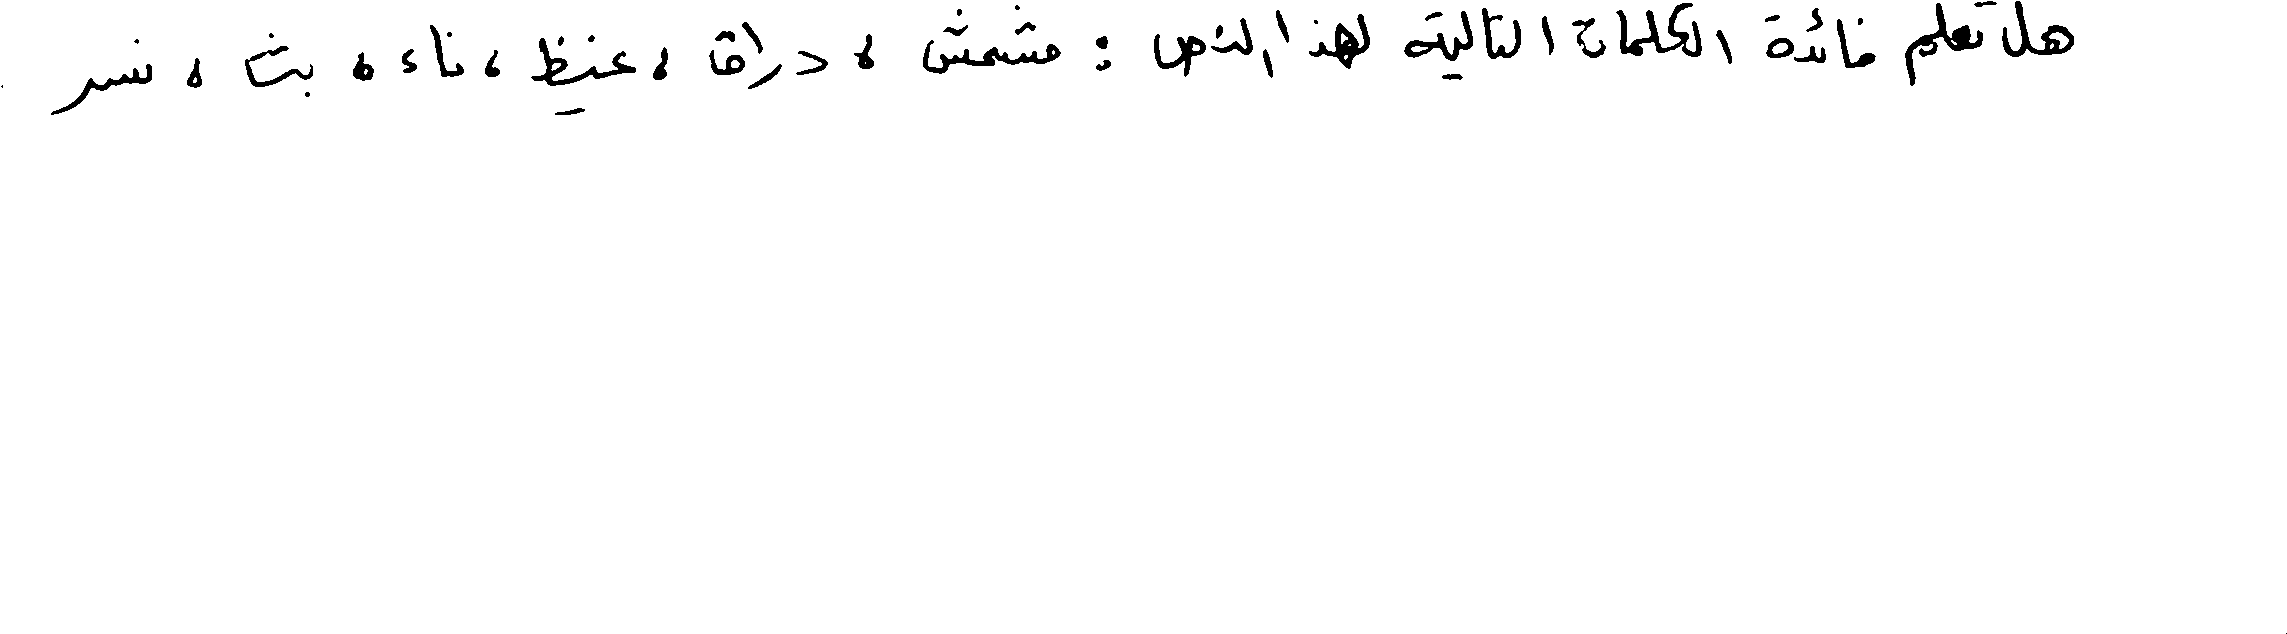 هل تعلم فائدة الكلمات التالية لهذا النص : مشمش ، دراق ، غيظ ، ناء ، بث ، نسر